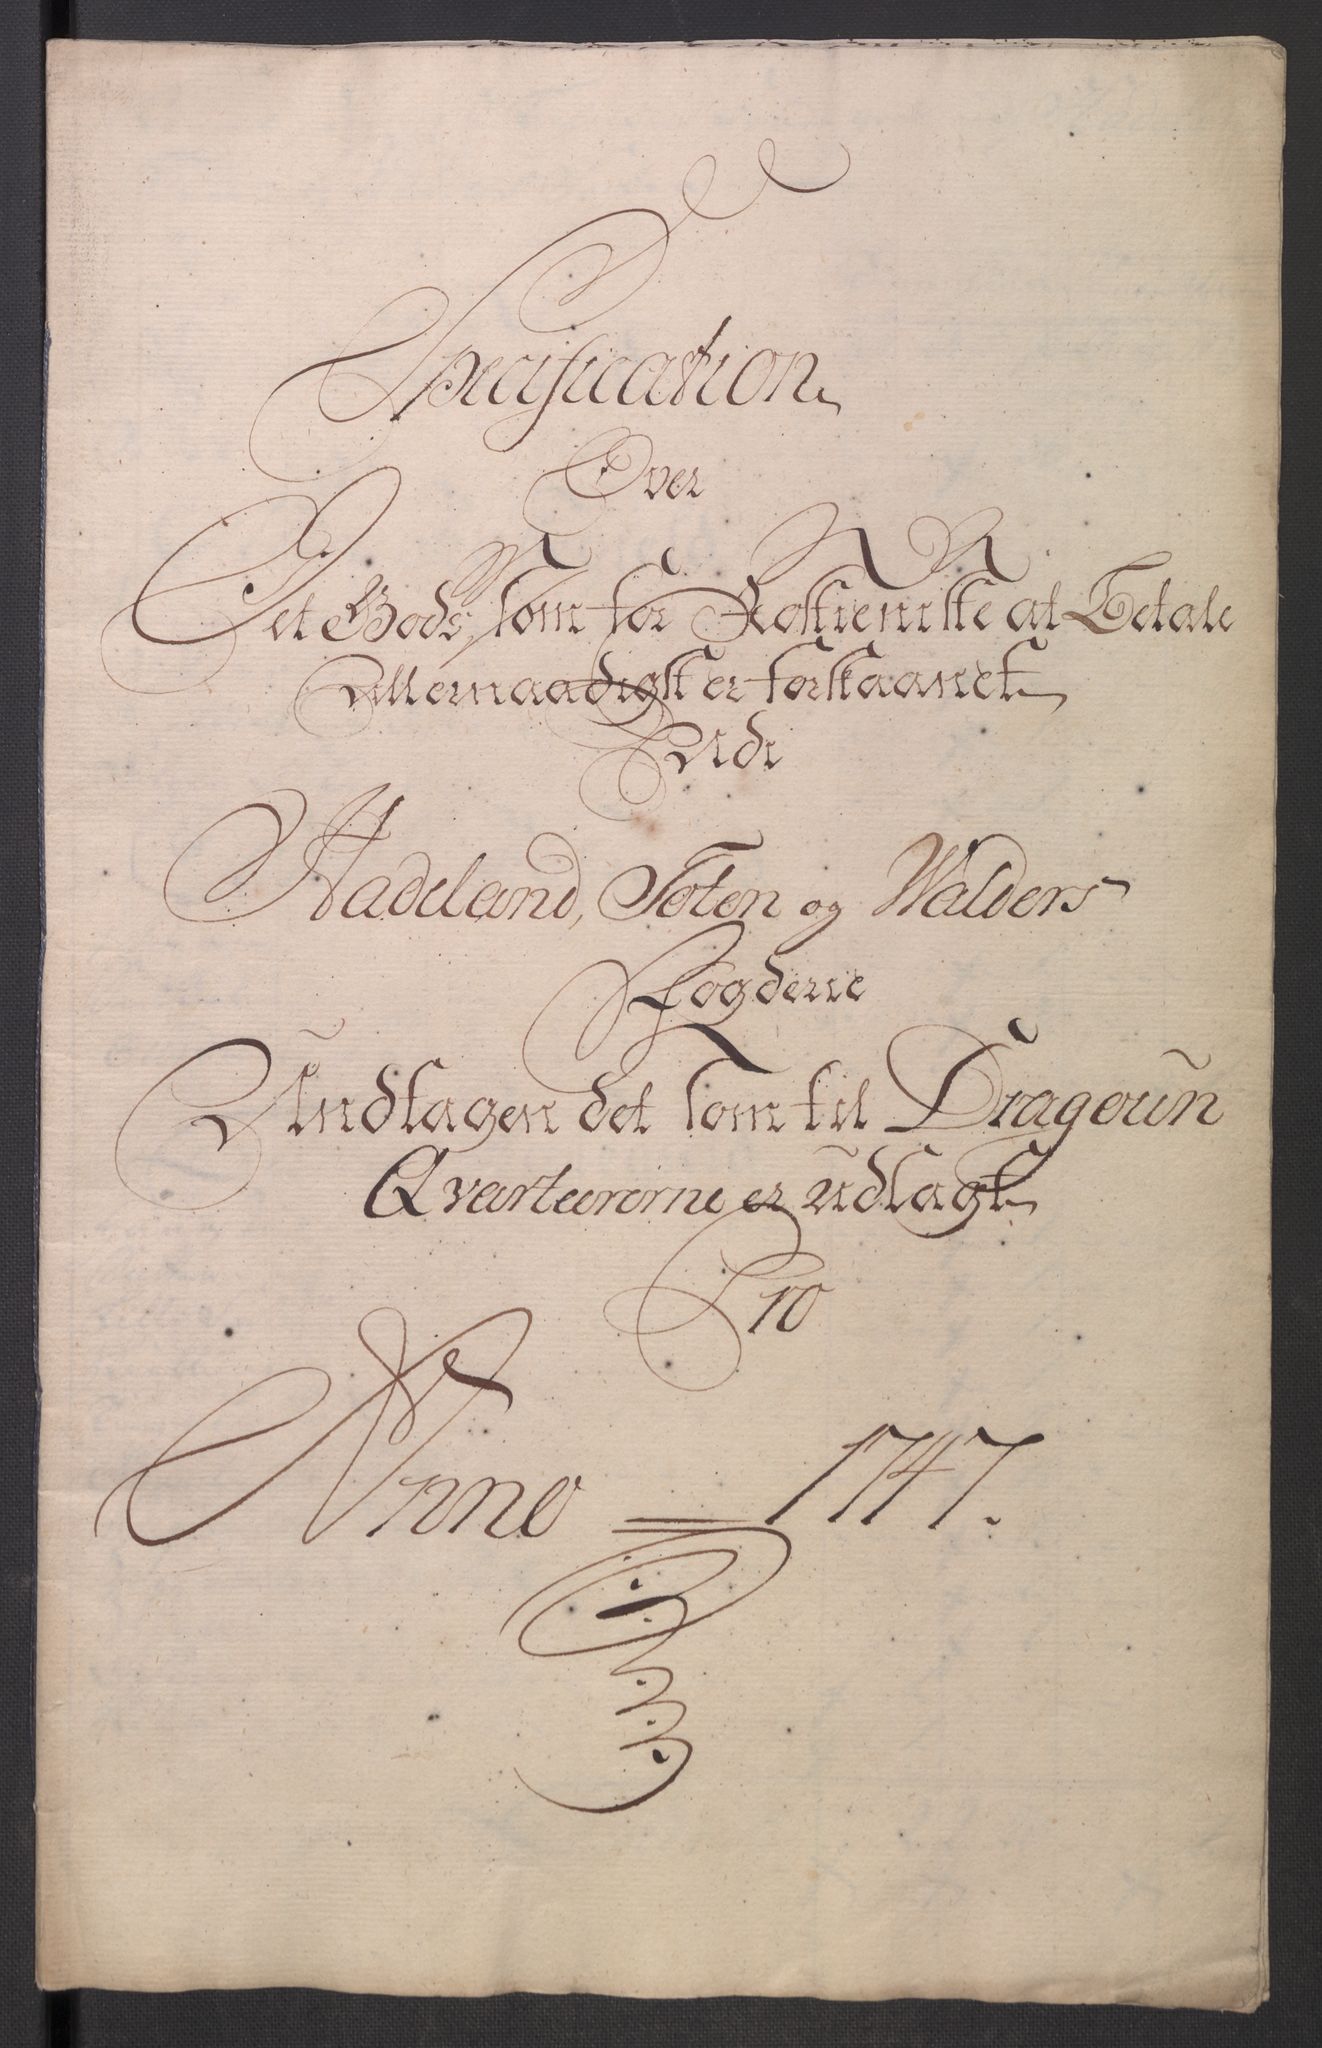 Specification
Over
Det Gods, som for Rostieniste at Betale
Allernaadigst er forskaanet
Udi
Hadeland, Toten og Walders
Fogderie
Undtagen det som til Dragoun
Qvarteererne er udlagt
Pro
Anno = 1747.